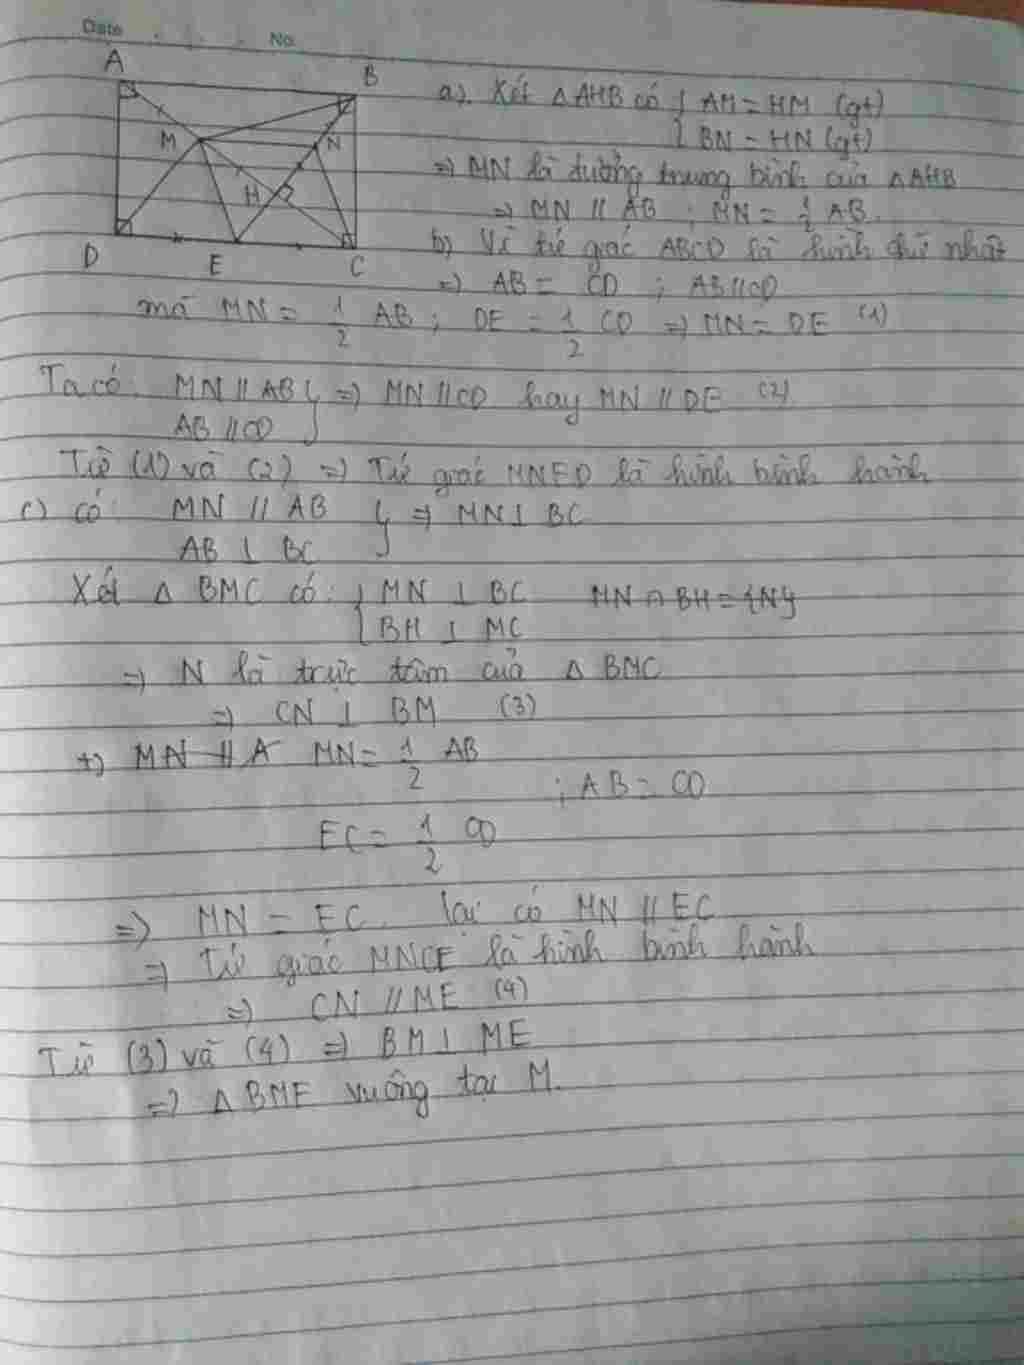 Date No
A
B
M
N
H
D
E
C
a). Xét △AHB có { AM = HM (gt)
BN = HN (gt)
=> MN là đường trung bình của △AHB
=> MN // AB ; MN = 1/2 AB.
b) Vì tứ giác ABCD là hình chữ nhật
=> AB = CD ; AB//CD
mà MN = 1/2 AB ; DE = 1/2 CD => MN = DE (1)
Ta có: MN // AB } => MN // CD hay MN // DE (2)
AB // CD
Từ (1) và (2) => Tứ giác MNED là hình bình hành
c) có: MN // AB } => MN ⊥ BC
AB ⊥ BC
Xét △ BMC có: { MN ⊥ BC MN ∩ BH = {N}
BH ⊥ MC
=> N là trực tâm của △ BMC
=> CN ⊥ BM (3)
+) MN // A MN = 1/2 AB
; AB = CD
EC = 1/2 CD
=> MN = EC. lại có MN // EC
=> Tứ giác MNCE là hình bình hành
=> CN // ME (4)
Từ (3) và (4) => BM ⊥ ME
=> △ BME vuông tại M.